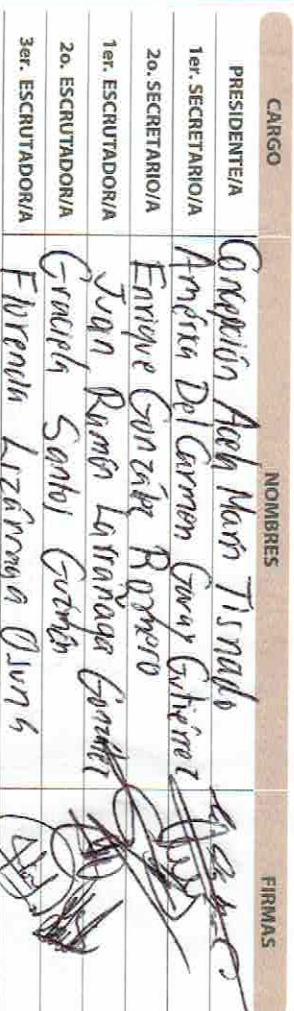 CARGO NOMBRES FIRMAS
PRESIDENTE/A Concepción Marín Tisnado
1er. SECRETARIO/A América Del Carmen Garay Gutiérrez
2o. SECRETARIO/A Enrique González Romero
1er. ESCRUTADOR/A Juan Ramón Larrañaga González
2o. ESCRUTADOR/A Graciela Santos Guzmán
3er. ESCRUTADOR/A Florencia Lizárraga Osuna